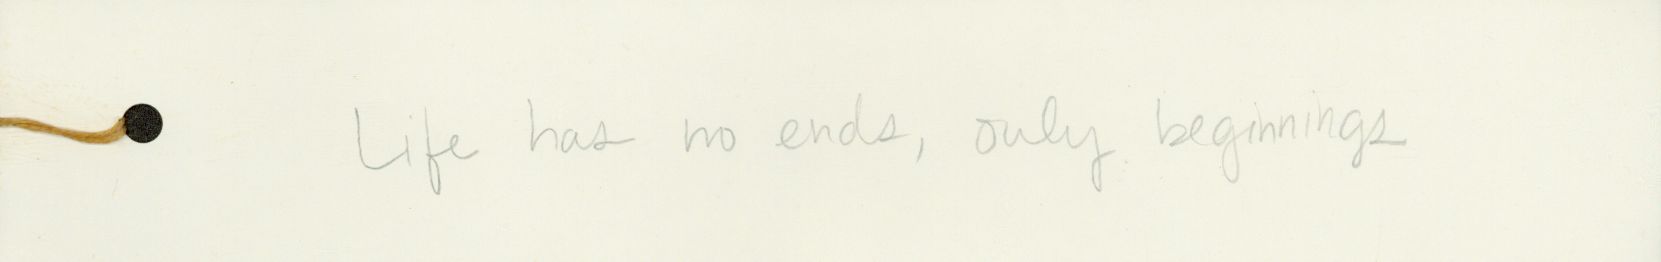 Life has no ends, only beginnings